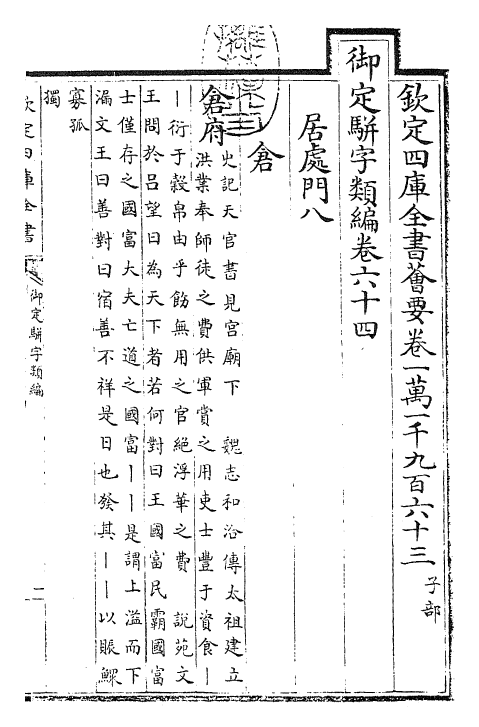 欽定四庫全書薈要卷一萬一千九百六十三 子部
御定駢字類編卷六十四
居處門八
倉
倉府
史記天官書見宮廟下 魏志和洽傳太祖建立
洪業奉師徒之費供軍賞之用吏士豐于資食丨
丨衍于穀帛由乎飭無用之官絕浮華之費 說苑文
王問於呂望曰為天下者若何對曰王國富民霸國富
士僅存之國富大夫亡道之國富丨丨是謂上溢而下
漏文王曰善對曰宿善不祥是日也發其丨丨以賑鰥
寡孤
獨
欽定四庫全書
御定駢字類編